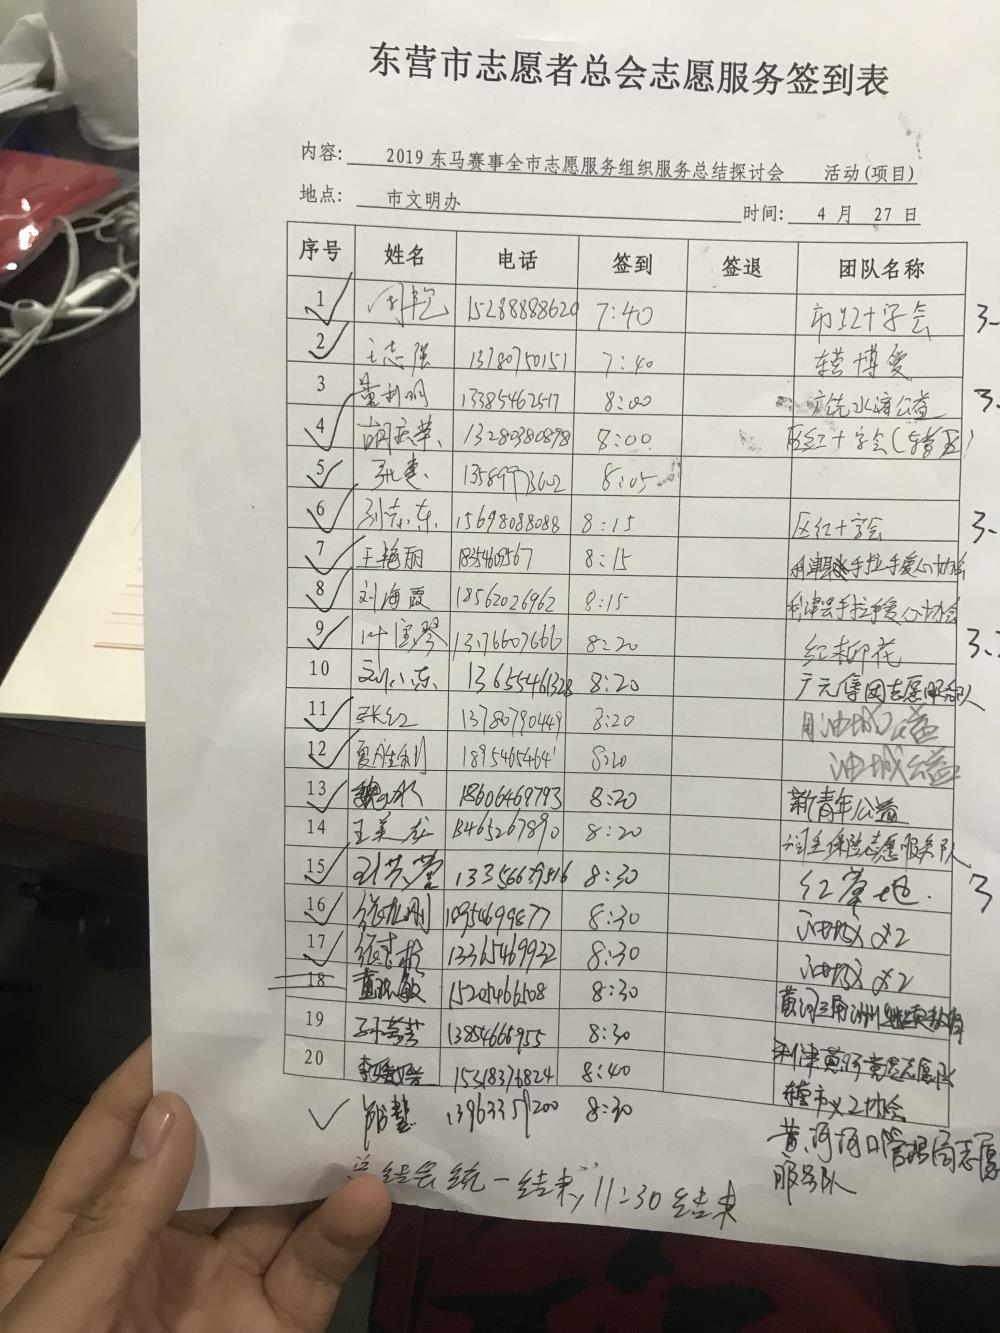 东营市志愿者总会志愿服务签到表
内容: 2019东马赛事全市志愿服务组织服务总结探讨会 活动(项目)
地点: 市文明办 时间: 4 月 27 日
序号 姓名 电话 签到 签退 团队名称
1 15288888620 7:40 市红十字会 3-
2 王志强 13780750151 7:40 东营博爱
3 董利明 13385462517 8:00 水滴公益 3.
4 胡庆荣 13280380898 8:00 区红十字会(东营区)
5 张建 8:05
6 刘志东 15698088088 8:15 区红十字会 3-
7 王艳丽 1835460567 8:15 利津县手拉手爱心协会
8 刘海霞 18562026962 8:15 利津县手拉手爱心协会
9 叶宝琴 13176607666 8:20 红柳花 3.
10 刘小东 13655461328 8:20 广元集团志愿服务队
11 张红 13780790449 8:20 油城公益
12 夏胜利 1895465464 8:20 油城公益
13 18606469793 8:20 新青年公益
14 王美 13465267890 8:20 保险志愿服务队
15 刘芳营 13356639516 8:30 红草地 3
16 18954699877 8:30 油城公益
17 13365469932 8:30 油城公益
18 15201466508 8:30 黄河三角洲
19 孙芳芳 13854666955 8:30 利津黄河党员志愿队
20 李 15318376824 8:40 东营市义工协会
13963359200 8:30 黄河河口管理局志愿
服务队
总结会统一结束,11:30结束